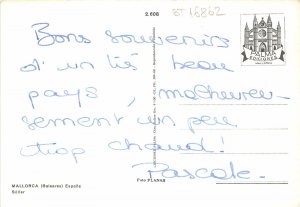 2.608
ST 16862
PALMA
EDICIONES
Bons souvenirs
d'un tis beau
pays, malheureu-
sement un peu
trop chaud!
Pascale.
Foto PLANAS
MALLORCA (Baleares) España
Sóller